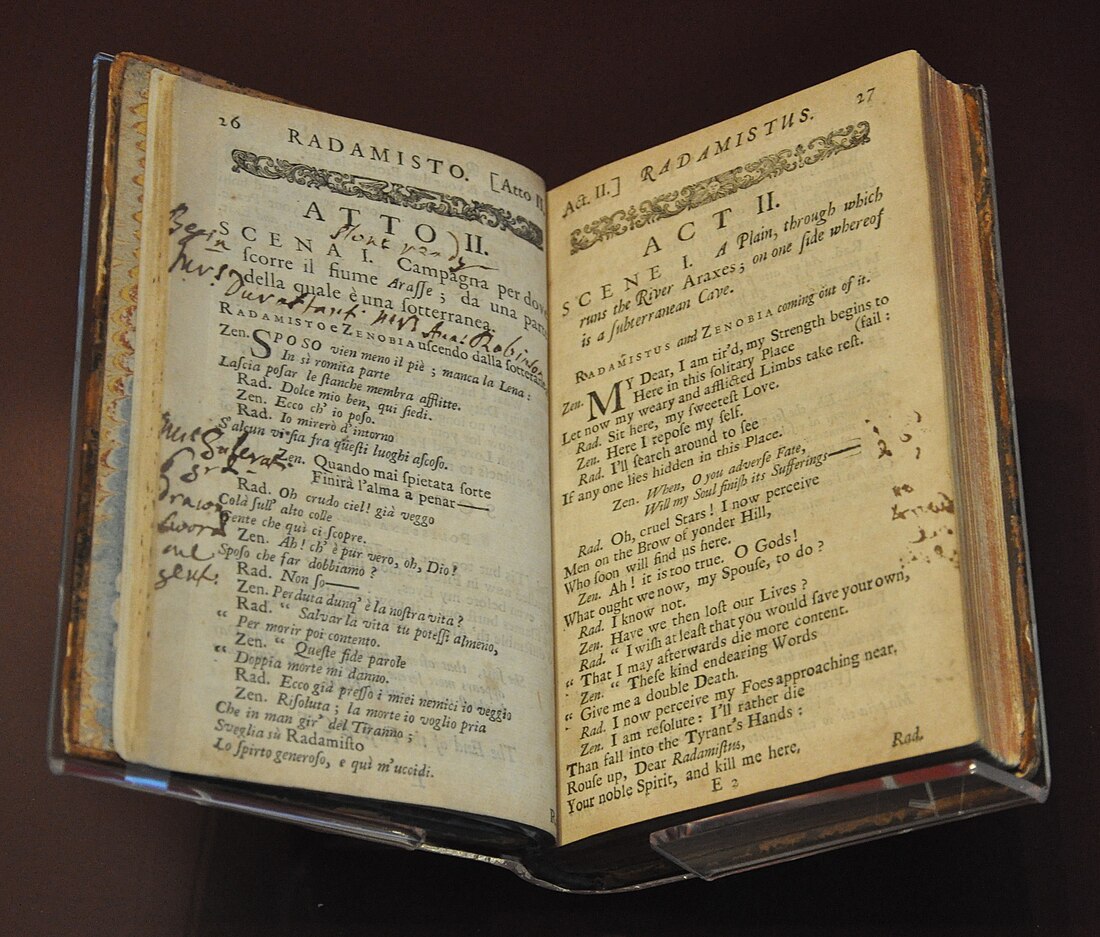 26
RADAMISTO. [Atto II
ATTO II.
SCENA I. Campagna per dove
scorre il fiume Arasse; da una parte
della quale è una sotterranea.
RADAMISTO e ZENOBIA uscendo dalla sotterranea
Zen. SPOSO vien meno il piè; manca la Lena:
In sì romita parte
Lascia posar le stanche membra afflitte.
Rad. Dolce mio ben, quì siedi.
Zen. Ecco ch' io poso.
Rad. Io mirerò d'intorno
S'alcun vi sia fra questi luoghi ascoso.
Zen. Quando mai spietata sorte
Finirà l'alma a penar——
Rad. Oh crudo ciel! già veggo
Colà sull' alto colle
Gente che quì ci scopre.
Zen. Ah! ch' è pur vero, oh, Dio!
Sposo che far dobbiamo?
Rad. Non so——
Zen. Perduta dunq' è la nostra vita?
Rad. “ Salvar la vita tu potessi almeno,
“ Per morir poi contento.
Zen. “ Queste fide parole
“ Doppia morte mi danno.
Rad. Ecco già presso i miei nemici io veggio
Zen. Risoluta; la morte io voglio pria
Che in man gir' del Tiranno;
Sveglia sù Radamisto
Lo spirto generoso, e quì m'uccidi.
Begin
Mrs Durastant Mrs Ann: Robinson
drawn
sword
27
Act. II.] RADAMISTUS.
ACT II.
SCENE I. A Plain, through which
runs the River Araxes; on one side whereof
is a subterranean Cave.
RADAMISTUS and ZENOBIA coming out of it.
Zen. MY Dear, I am tir'd, my Strength begins to
Here in this solitary Place (fail:
Let now my weary and afflicted Limbs take rest.
Rad. Sit here, my sweetest Love.
Zen. Here I repose my self.
Rad. I'll search around to see
If any one lies hidden in this Place.
Zen. When, O you adverse Fate,
Will my Soul finish its Sufferings——
Rad. Oh, cruel Stars! I now perceive
Men on the Brow of yonder Hill,
Who soon will find us here.
Zen. Ah! it is too true. O Gods!
What ought we now, my Spouse, to do?
Rad. I know not.
Zen. Have we then lost our Lives?
Rad. “ I wish at least that you would save your own,
“ That I may afterwards die more content.
Zen. “ These kind endearing Words
“ Give me a double Death.
Rad. I now perceive my Foes approaching near,
Zen. I am resolute: I'll rather die
Than fall into the Tyrant's Hands:
Rouse up, Dear Radamistus,
Your noble Spirit, and kill me here,
E 2 Rad.